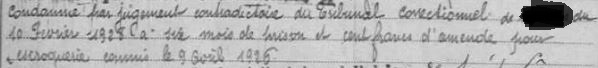 Condamné par jugement contradictoire du Tribunal correctionnel de du
10 Février 1928 à six mois de prison et cent francs d'amende pour
escroquerie commis le 9 Avril 1926